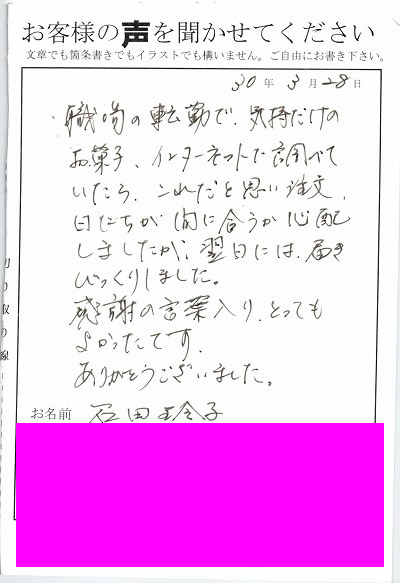 お客様の声を聞かせてください
文章でも箇条書きでもイラストでも構いません。ご自由にお書き下さい。
30年 3月 28日
職場の転勤で、気持だけの
お菓子、インターネットで調べて
いたら、これだと思い注文、
日にちが間に合うか心配
しましたが、翌日には、届き
びっくりしました。
感謝の言葉入り、とっても
よかったです、
ありがとうございました。
お名前 石田玲子
切り取り線